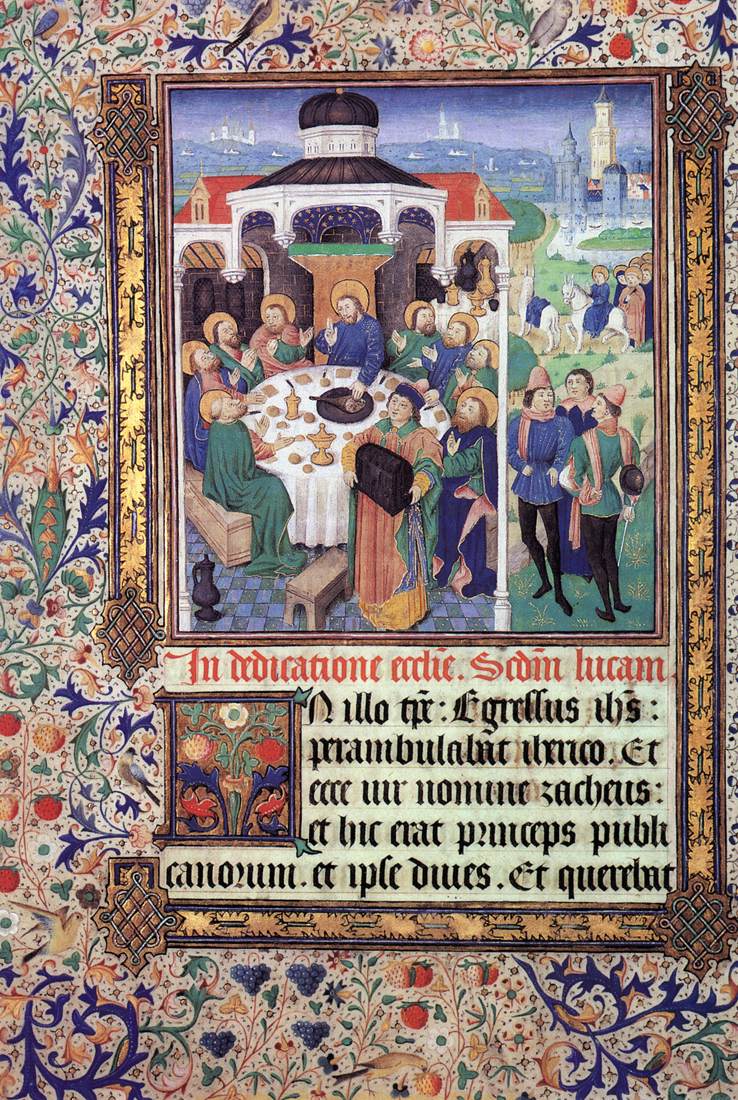 In dedicatione eccl̄ie. Scd̄m lucam.
IN illo tp̄r: Egressus ih̄s:
perambulabat iherico. Et
ecce uir nomine zacheus:
et hic erat princeps publi
canorum. et ipse diues. Et querebat